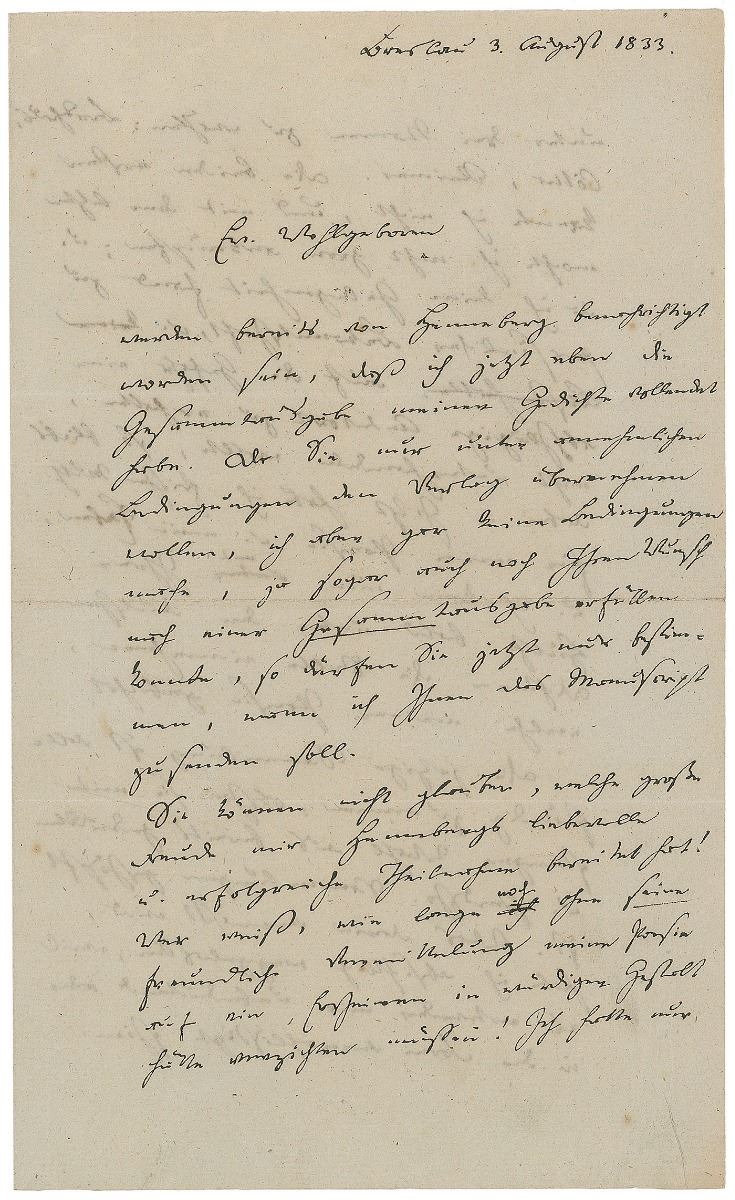 Breslau 3. August 1833.
Ew. Wohlgeboren
werden bereits von Henneberg benachrichtigt
worden sein, daß ich jetzt eben die
Gesammtausgabe meiner Gedichte vollendet
habe. Da Sie nur unter annehmlichen
Bedingungen den Verlag übernehmen
wollen, ich aber gar keine Bedingungen
mache, ja sogar auch noch Ihren Wunsch
nach einer Gesammtausgabe erfüllen
konnte, so dürfen Sie jetzt nur bestim-
men, wann ich Ihnen das Manuscript
zusenden soll.
Sie können nicht glauben, welche große
Freude mir Hennebergs liebevolle
u. erfolgreiche Theilnahme bereitet hat!
Wer weiß, wie lange noch ohne seine
freundliche Vermittelung meine Poesie
auf ein Erscheinen in würdiger Gestalt
hätte verzichten müssen! Ich hatte nur